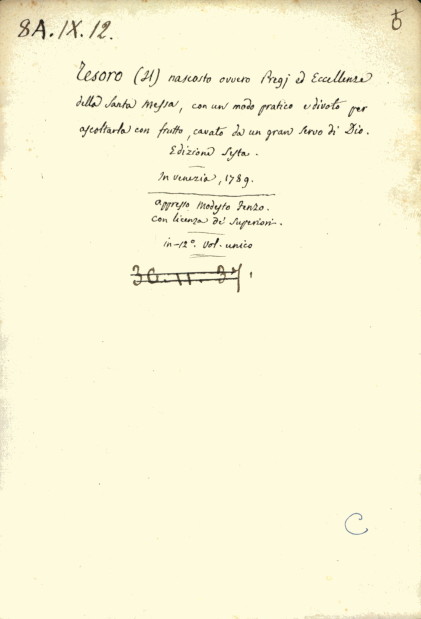 8A.IX.12.
Tesoro (Il) nascosto ovvero Pregj ed Eccellenze
della Santa Messa, con un modo pratico e divoto per
ascoltarla con frutto, cavato da un gran Servo di Dio.
Edizione Sesta.
In Venezia, 1789.
appresso Modesto Fenzo.
con licenza de' Superiori.
in-12º. vol. unico
30.11.34
C